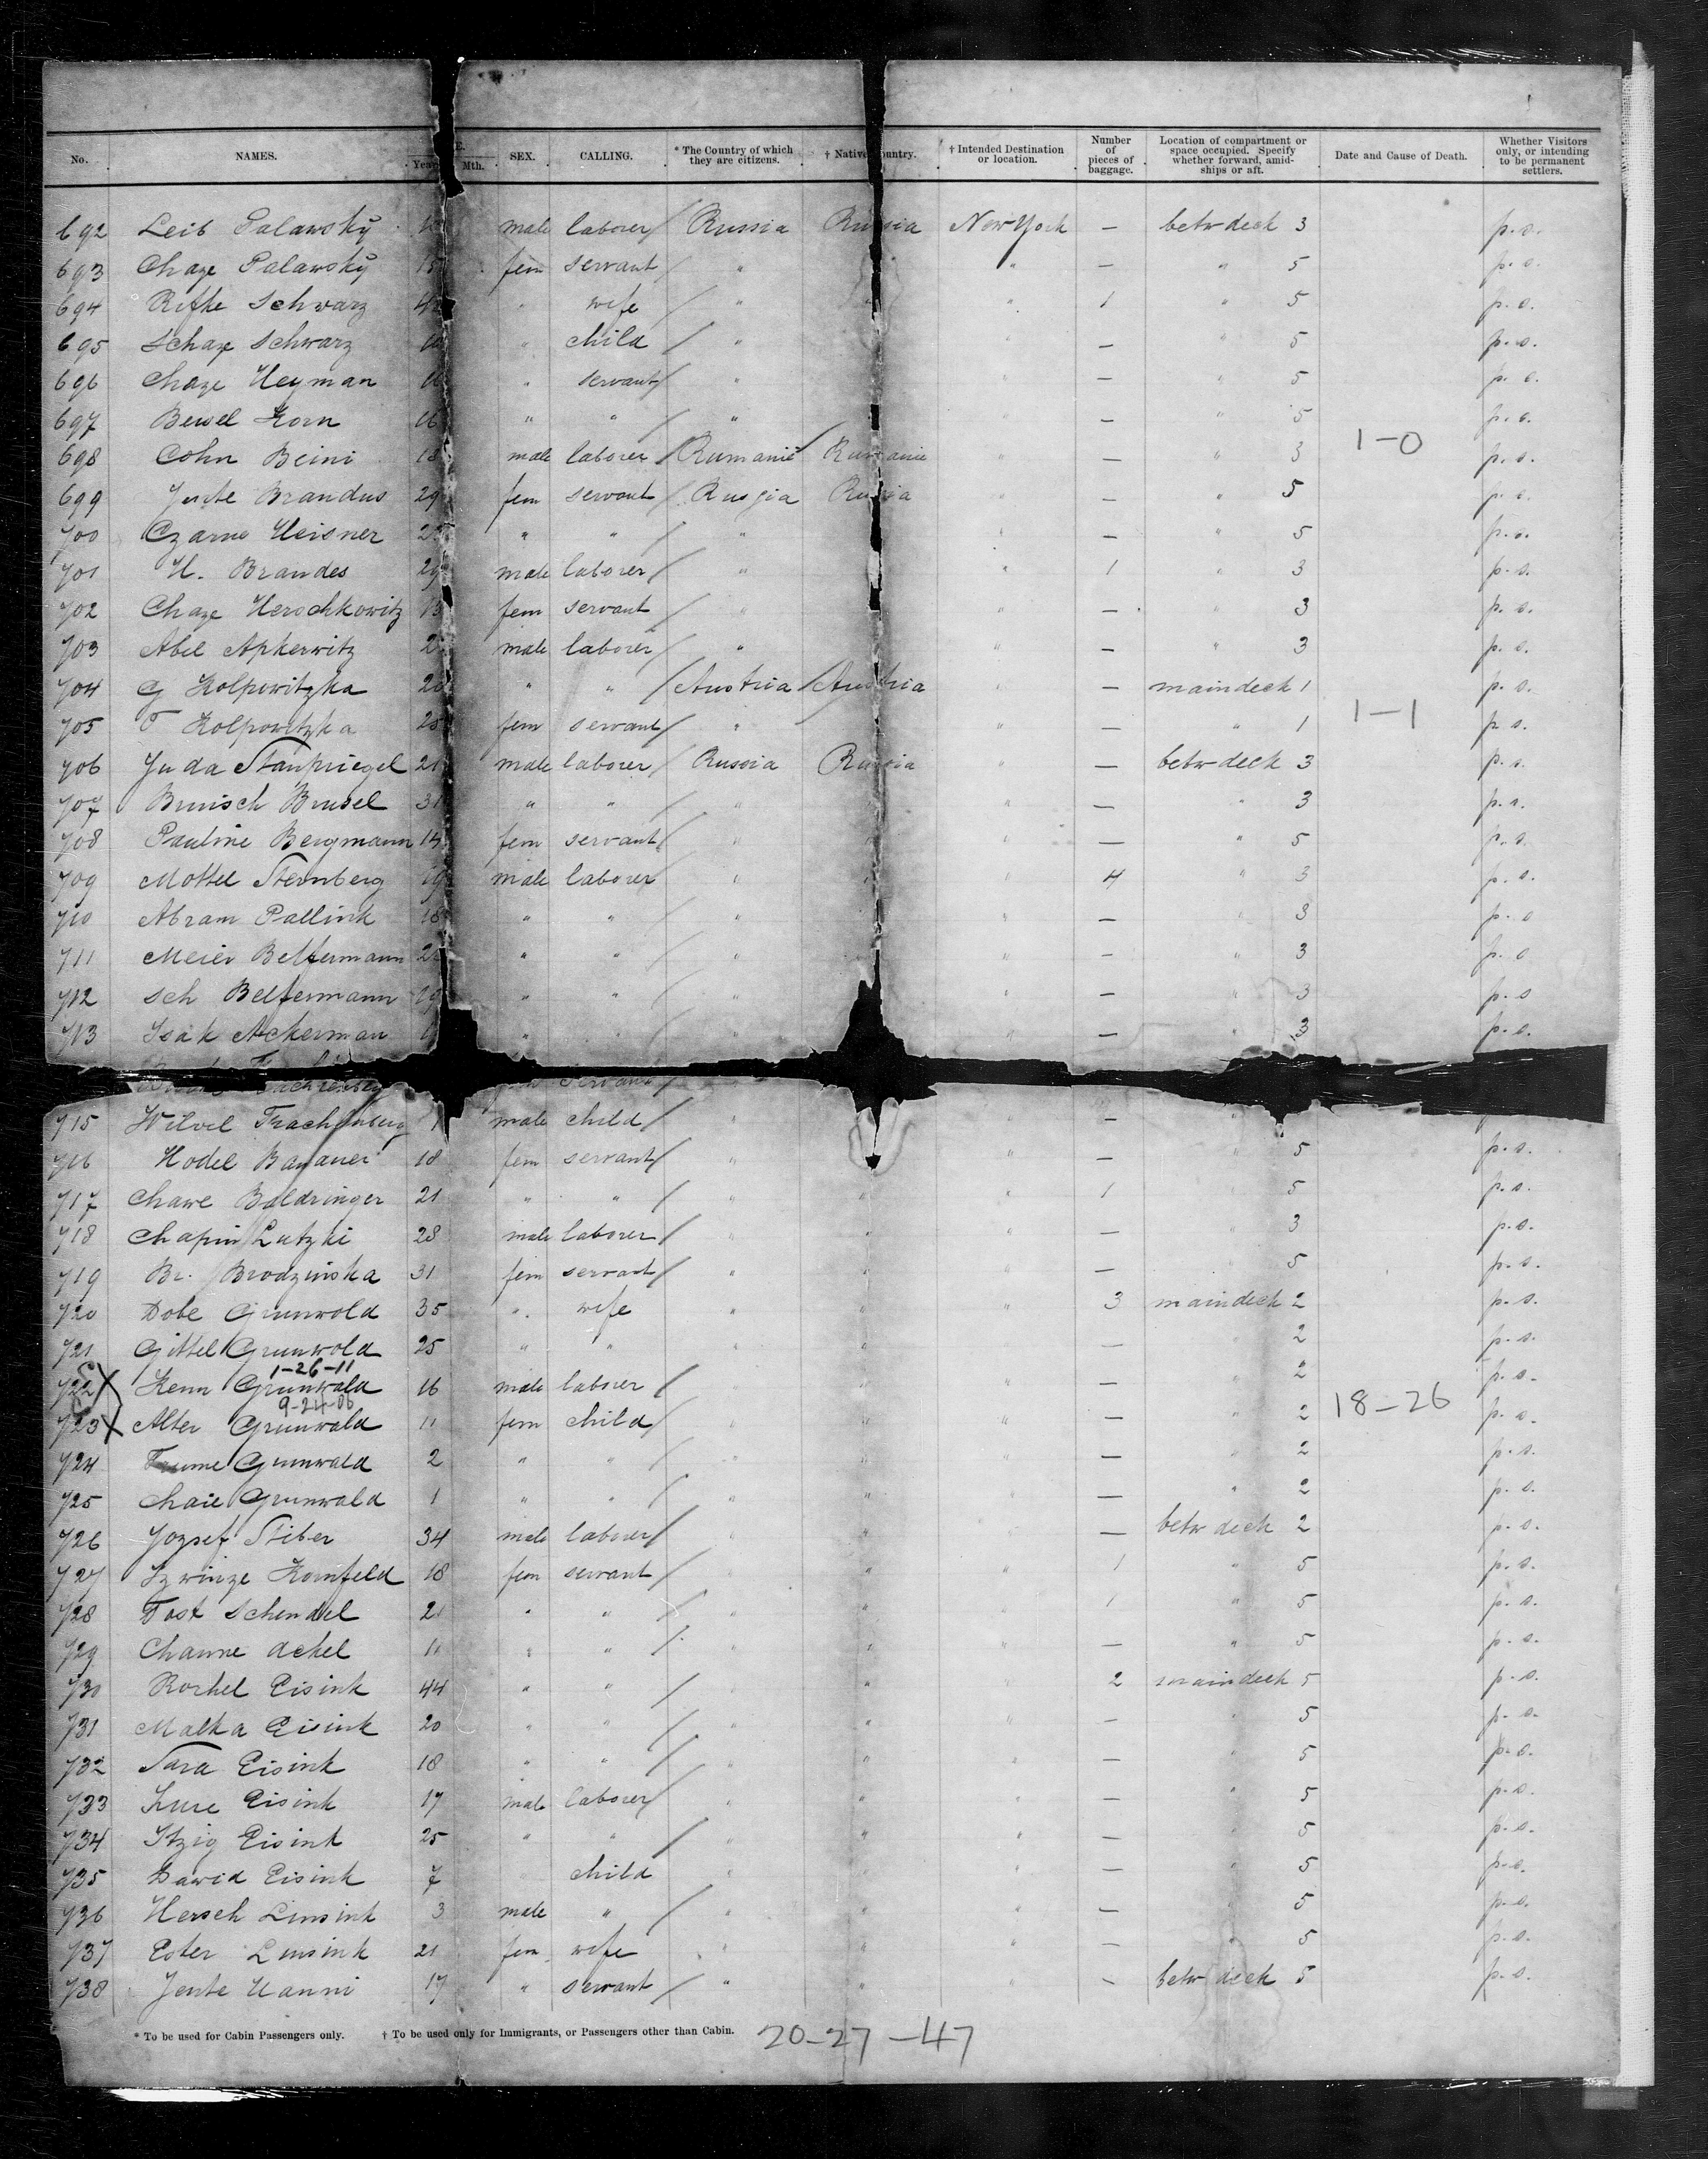 No. NAMES. Year Mth. SEX. CALLING. * The Country of which they are citizens. † Native Country. † Intended Destination or location. Number of pieces of baggage. Location of compartment or space occupied. Specify whether forward, amidships or aft. Date and Cause of Death. Whether Visitors only, or intending to be permanent settlers.
692 Leib Palawsky male laborer / Russia Russia New York — betw deck 3 p. s.
693 Chaze Palawsky 15 fem servant / " " " — " 5 p. s.
694 Rifke Schwarz " wife / " " " 1 " 5 p. s.
695 Schaze Schwarz " child / " " — " 5 p. s.
696 Chaze Heyman 16 " servant / " " — " 5 p. s.
697 Beisel Korn 16 " " / " " — " 5 p. s.
698 Cohn Beini 18 male laborer / Rumanie / Rumanie " — " 3 1-0 p. s.
699 Jente Brandus 29 fem servant / Russia Russia " — " 5 p. s.
700 Czarne Heisner " " / " " — " 5 p. s.
701 H. Brandes 29 male laborer / " " 1 " 3 p. s.
702 Chaze Herschkowitz fem servant / " " — " 3 p. s.
703 Abel Apkerwitz male laborer / " " — " 3 p. s.
704 G Kolpowitzka " " / Austria / Austria " — maindeck 1 p. s.
705 Kolpowitzka 25 fem servant / " — " 1 1-1 p. s.
706 Juda Stanpriegel 21 male laborer / Russia Russia " — betw deck 3 p. s.
707 Bruisch Brusel 31 " " / " " — " 3 p. s.
708 Pauline Bergmann 14 fem servant / " " " — " 5 p. s.
709 Mottel Sternberg 19 male laborer / " " " 4 " 3 p. s.
710 Abram Pallink 18 " " / " " — " 3 p. s
711 Meier Belfermann " " / " " — " 3 p. s
712 Sch Belfermann 19 " " / " " — " 3 p. s
713 Isak Ackerman " " " " — " 3 p. s.
servant /
715 Wilvel Trachtenberg 1 male child / " " — "
716 Hodel Bananer 18 fem servant / " " — " 5 p. s.
717 Chawe Baldringer 21 " " / " " " 1 5 p. s.
718 Chapin Lutzki 28 male laborer / " " " — " 3 p. s.
719 Br. Brodzinska 31 fem servant / " " " — 5 p. s.
720 Dobe Grunwold 35 " wife " " " 3 maindeck 2 p. s.
721 Gittel Grunwold 25 " " " " " — " 2 p. s.
1-26-11
722 X Kenn Grunwald 16 male laborer / " " " — " 2 p. s.
9-24-06
723 X Alter Grunwald 11 fem child / " " " — " 2 18-26 p. s.
724 Grunwald 2 " " / " " " — " 2 p. s.
725 Chaie Grunwald 1 " " / " " " — " 2 p. s.
726 Jozsef Stiber 34 male laborer / " " " — betw deck 2 p. s.
727 Kornfeld 18 fem servant / " " " 1 " 5 p. s.
728 Tost Schendel 21 " " / " " " 1 " 5 p. s.
729 Channe Achel 11 " " / " " " — " 5 p. s.
730 Rochel Eisink 44 " " / " " " 2 maindeck 5 p. s.
731 Malka Eisink 20 " " / " " " — " 5 p. s.
732 Sara Eisink 18 " " / " " " — " 5 p. s.
733 Eisink 17 male laborer / " " " — " 5 p. s.
734 Itzig Eisink 25 " " / " " " — " 5 p. s.
735 Dawid Eisink 7 child " " " — " 5 p. s.
736 Hersch Linsink 3 male " / " " " — " 5 p. s.
737 Ester Linsink 21 fem wife " " " — " 5 p. s.
738 Jente Hanni 17 " servant / " " " — betw deck 5 p. s.
* To be used for Cabin Passengers only. † To be used only for Immigrants, or Passengers other than Cabin. 20-27-47